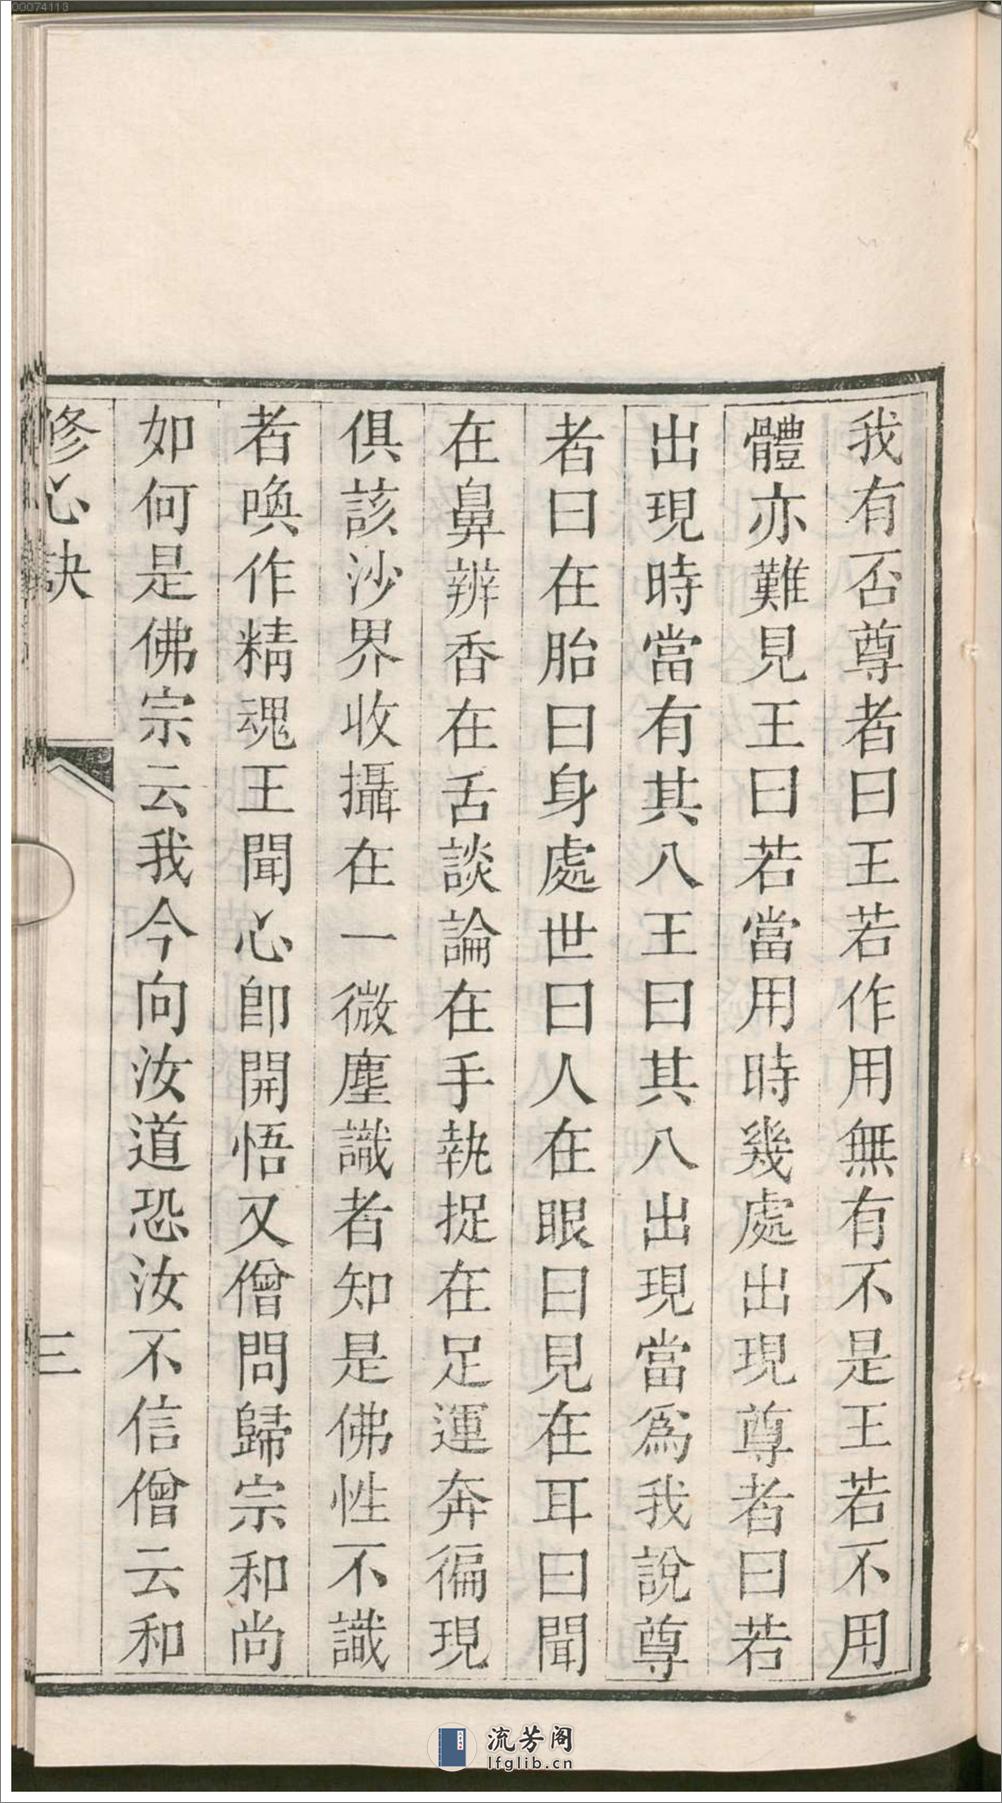 00074113
我有否尊者曰王若作用無有不是王若不用
體亦難見王曰若當用時幾處出現尊者曰若
出現時當有其八王曰其八出現當爲我說尊
者曰在胎曰身處世曰人在眼曰見在耳曰聞
在鼻辨香在舌談論在手執捉在足運奔徧現
俱該沙界收攝在一微塵識者知是佛性不識
者喚作精魂王聞心卽開悟又僧問歸宗和尚
如何是佛宗云我今向汝道恐汝不信僧云和
修心訣 三
流芳阁
lfglib.cn